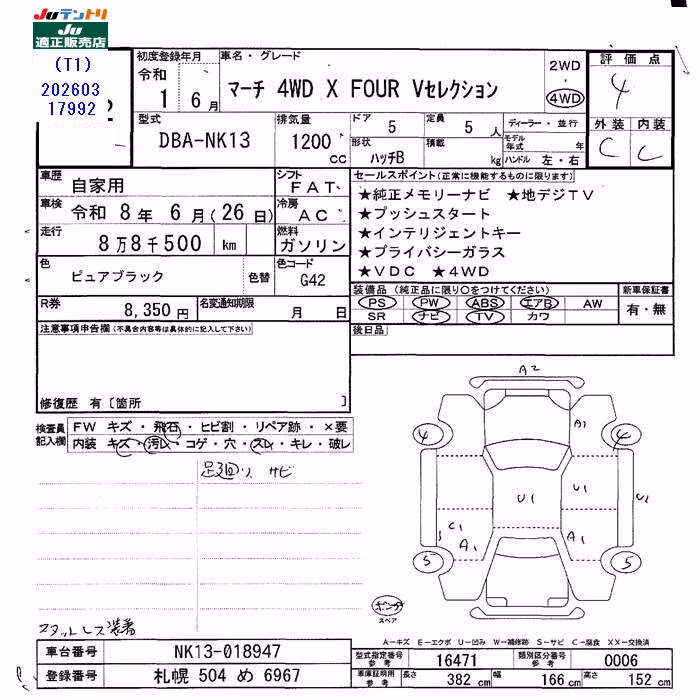 Juテントリ
Ju
適正販売店
(T1)
202603
17992
初度登録年月
令和
1 6月
車名・グレード
マーチ 4WD X FOUR Vセレクション
2WD
・
4WD
評価点
4
外装 内装
C C
型式
DBA-NK13
排気量
1200
cc
ドア 5
定員 5 人
形状
ハッチB
積載
kg
ディーラー・並行
モデル年式 年
ハンドル 左・右
車歴
自家用
シフト
FAT
車検
令和 8年 6月(26日)
冷房
AC
走行
8万8千500 km
燃料
ガソリン
色
ピュアブラック
色替
色コード
G42
R券
8,350円
名変通知期限
月 日
セールスポイント(正常に機能するものに限ります)
★純正メモリーナビ ★地デジTV
★プッシュスタート
★インテリジェントキー
★プライバシーガラス
★VDC ★4WD
装備品(純正品に限り○をつけてください)
PS PW ABS エアB AW
SR ナビ TV カワ
新車保証書
有・無
後日品
注意事項申告欄(不具合内容等は具体的に記入して下さい)
修復歴 有〔箇所 〕
検査員
記入欄
FW キズ・飛石・ヒビ割・リペア跡・×要
内装 キズ・汚レ・コゲ・穴・スレ・キレ・破レ
足廻り サビ
スタットレス装着
A2
4
A1
4
U1
U1
U2
C1
A1
A1
5
5
パンク
スペア
A−キズ E−エクボ U−凹み W−補修跡 S−サビ C−腐食 XX−交換済
車台番号
NK13-018947
登録番号
札幌 504 め 6967
型式指定番号
参考
16471
類別区分番号
参考
0006
車庫証明用
参考
長さ 382 cm 幅 166 cm 高さ 152 cm